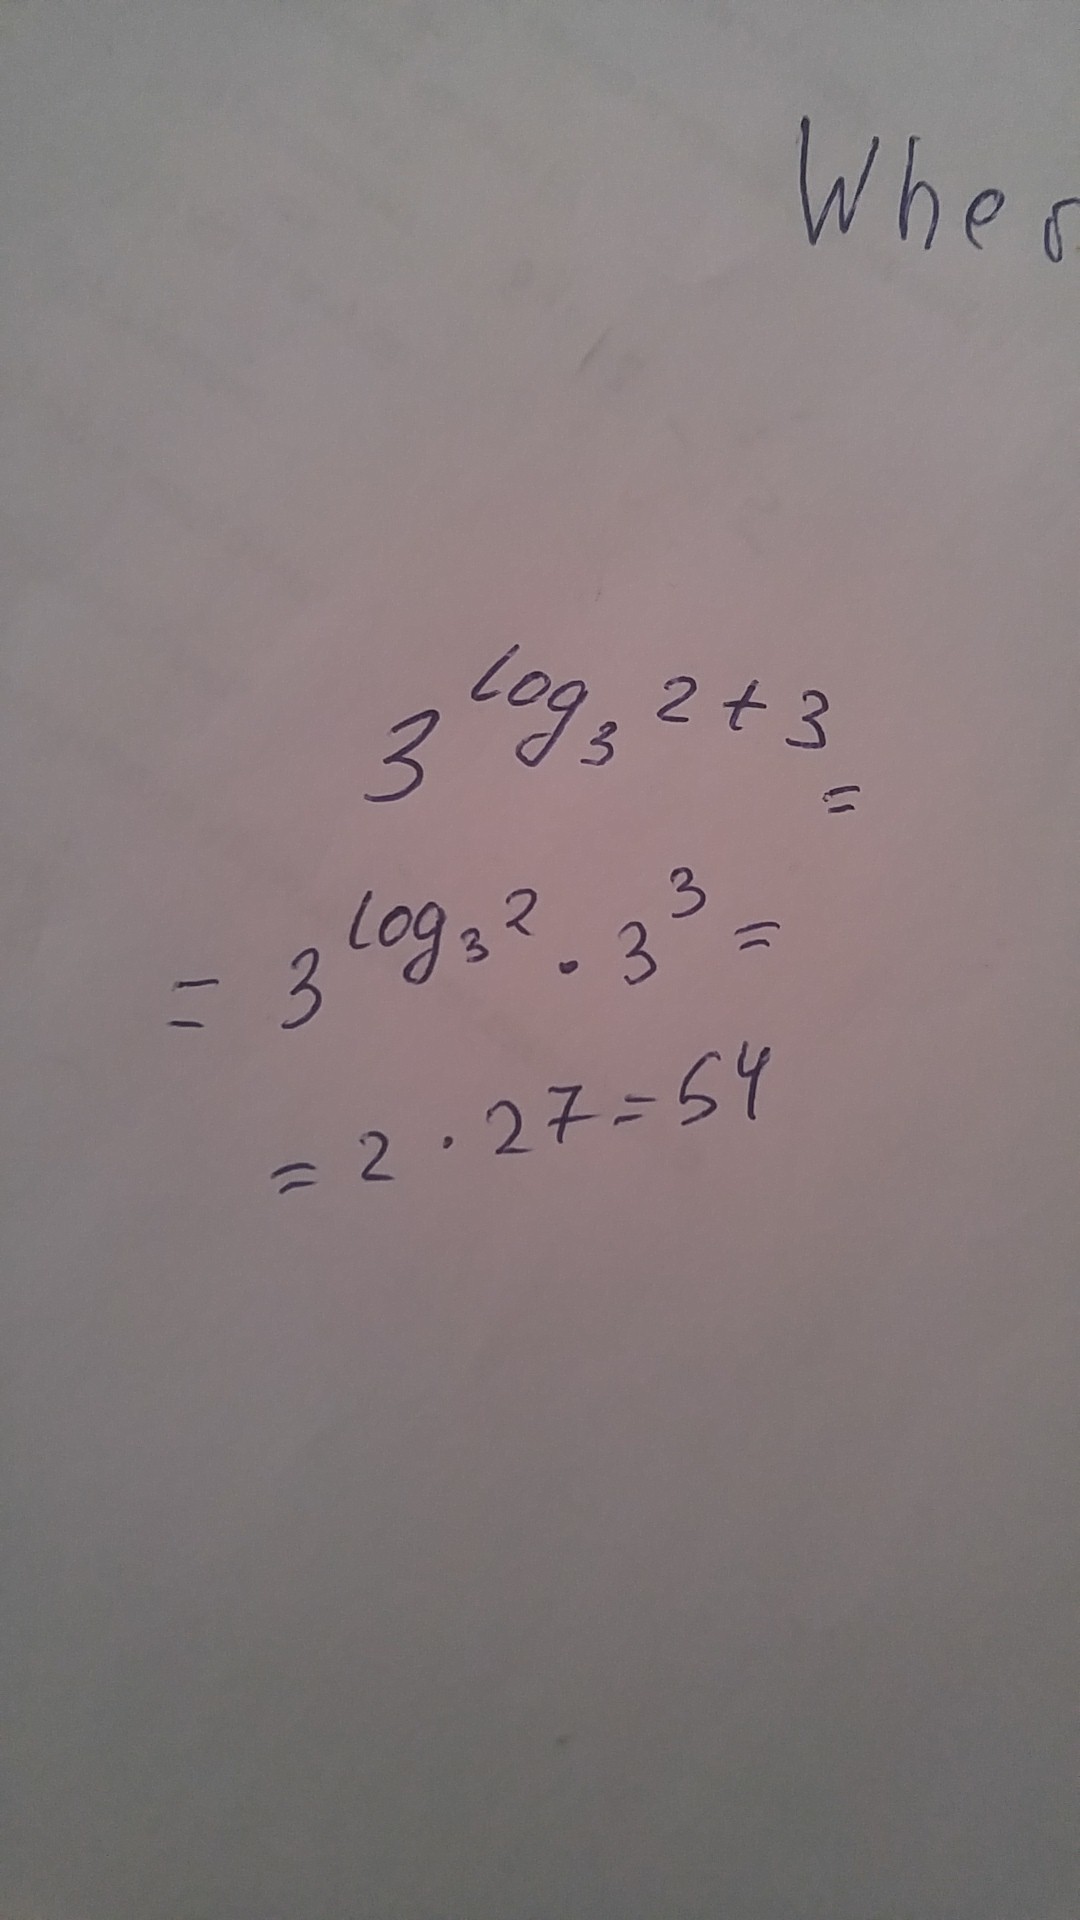 When
3^{log_3 2 + 3} =
= 3^{log_3 2} · 3^3 =
= 2 · 27 = 54